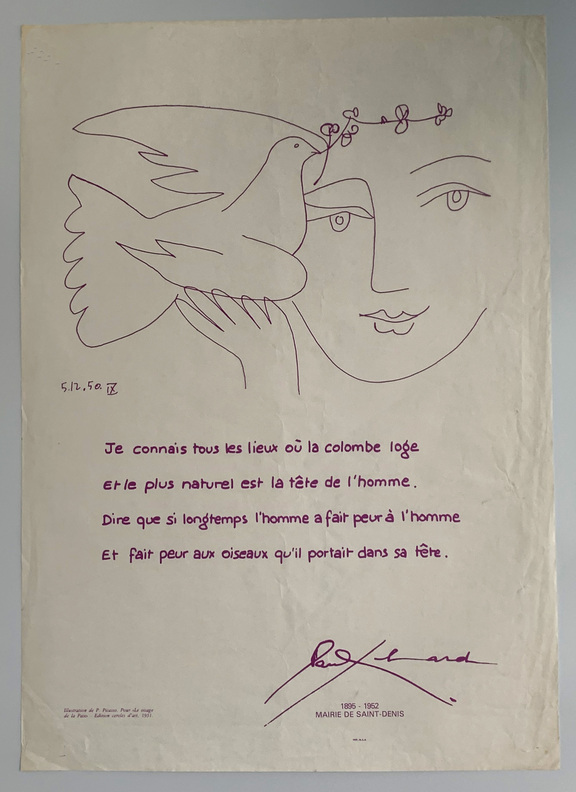 5.12.50. IX
Je connais tous les lieux où la colombe loge
Et le plus naturel est la tête de l'homme.
Dire que si longtemps l'homme a fait peur à l'homme
Et fait peur aux oiseaux qu'il portait dans sa tête.
Paul Eluard
1895 - 1952
MAIRIE DE SAINT-DENIS
Illustration de P. Picasso. Pour Le visage
de la Paix. Edition cercle d'art. 1951